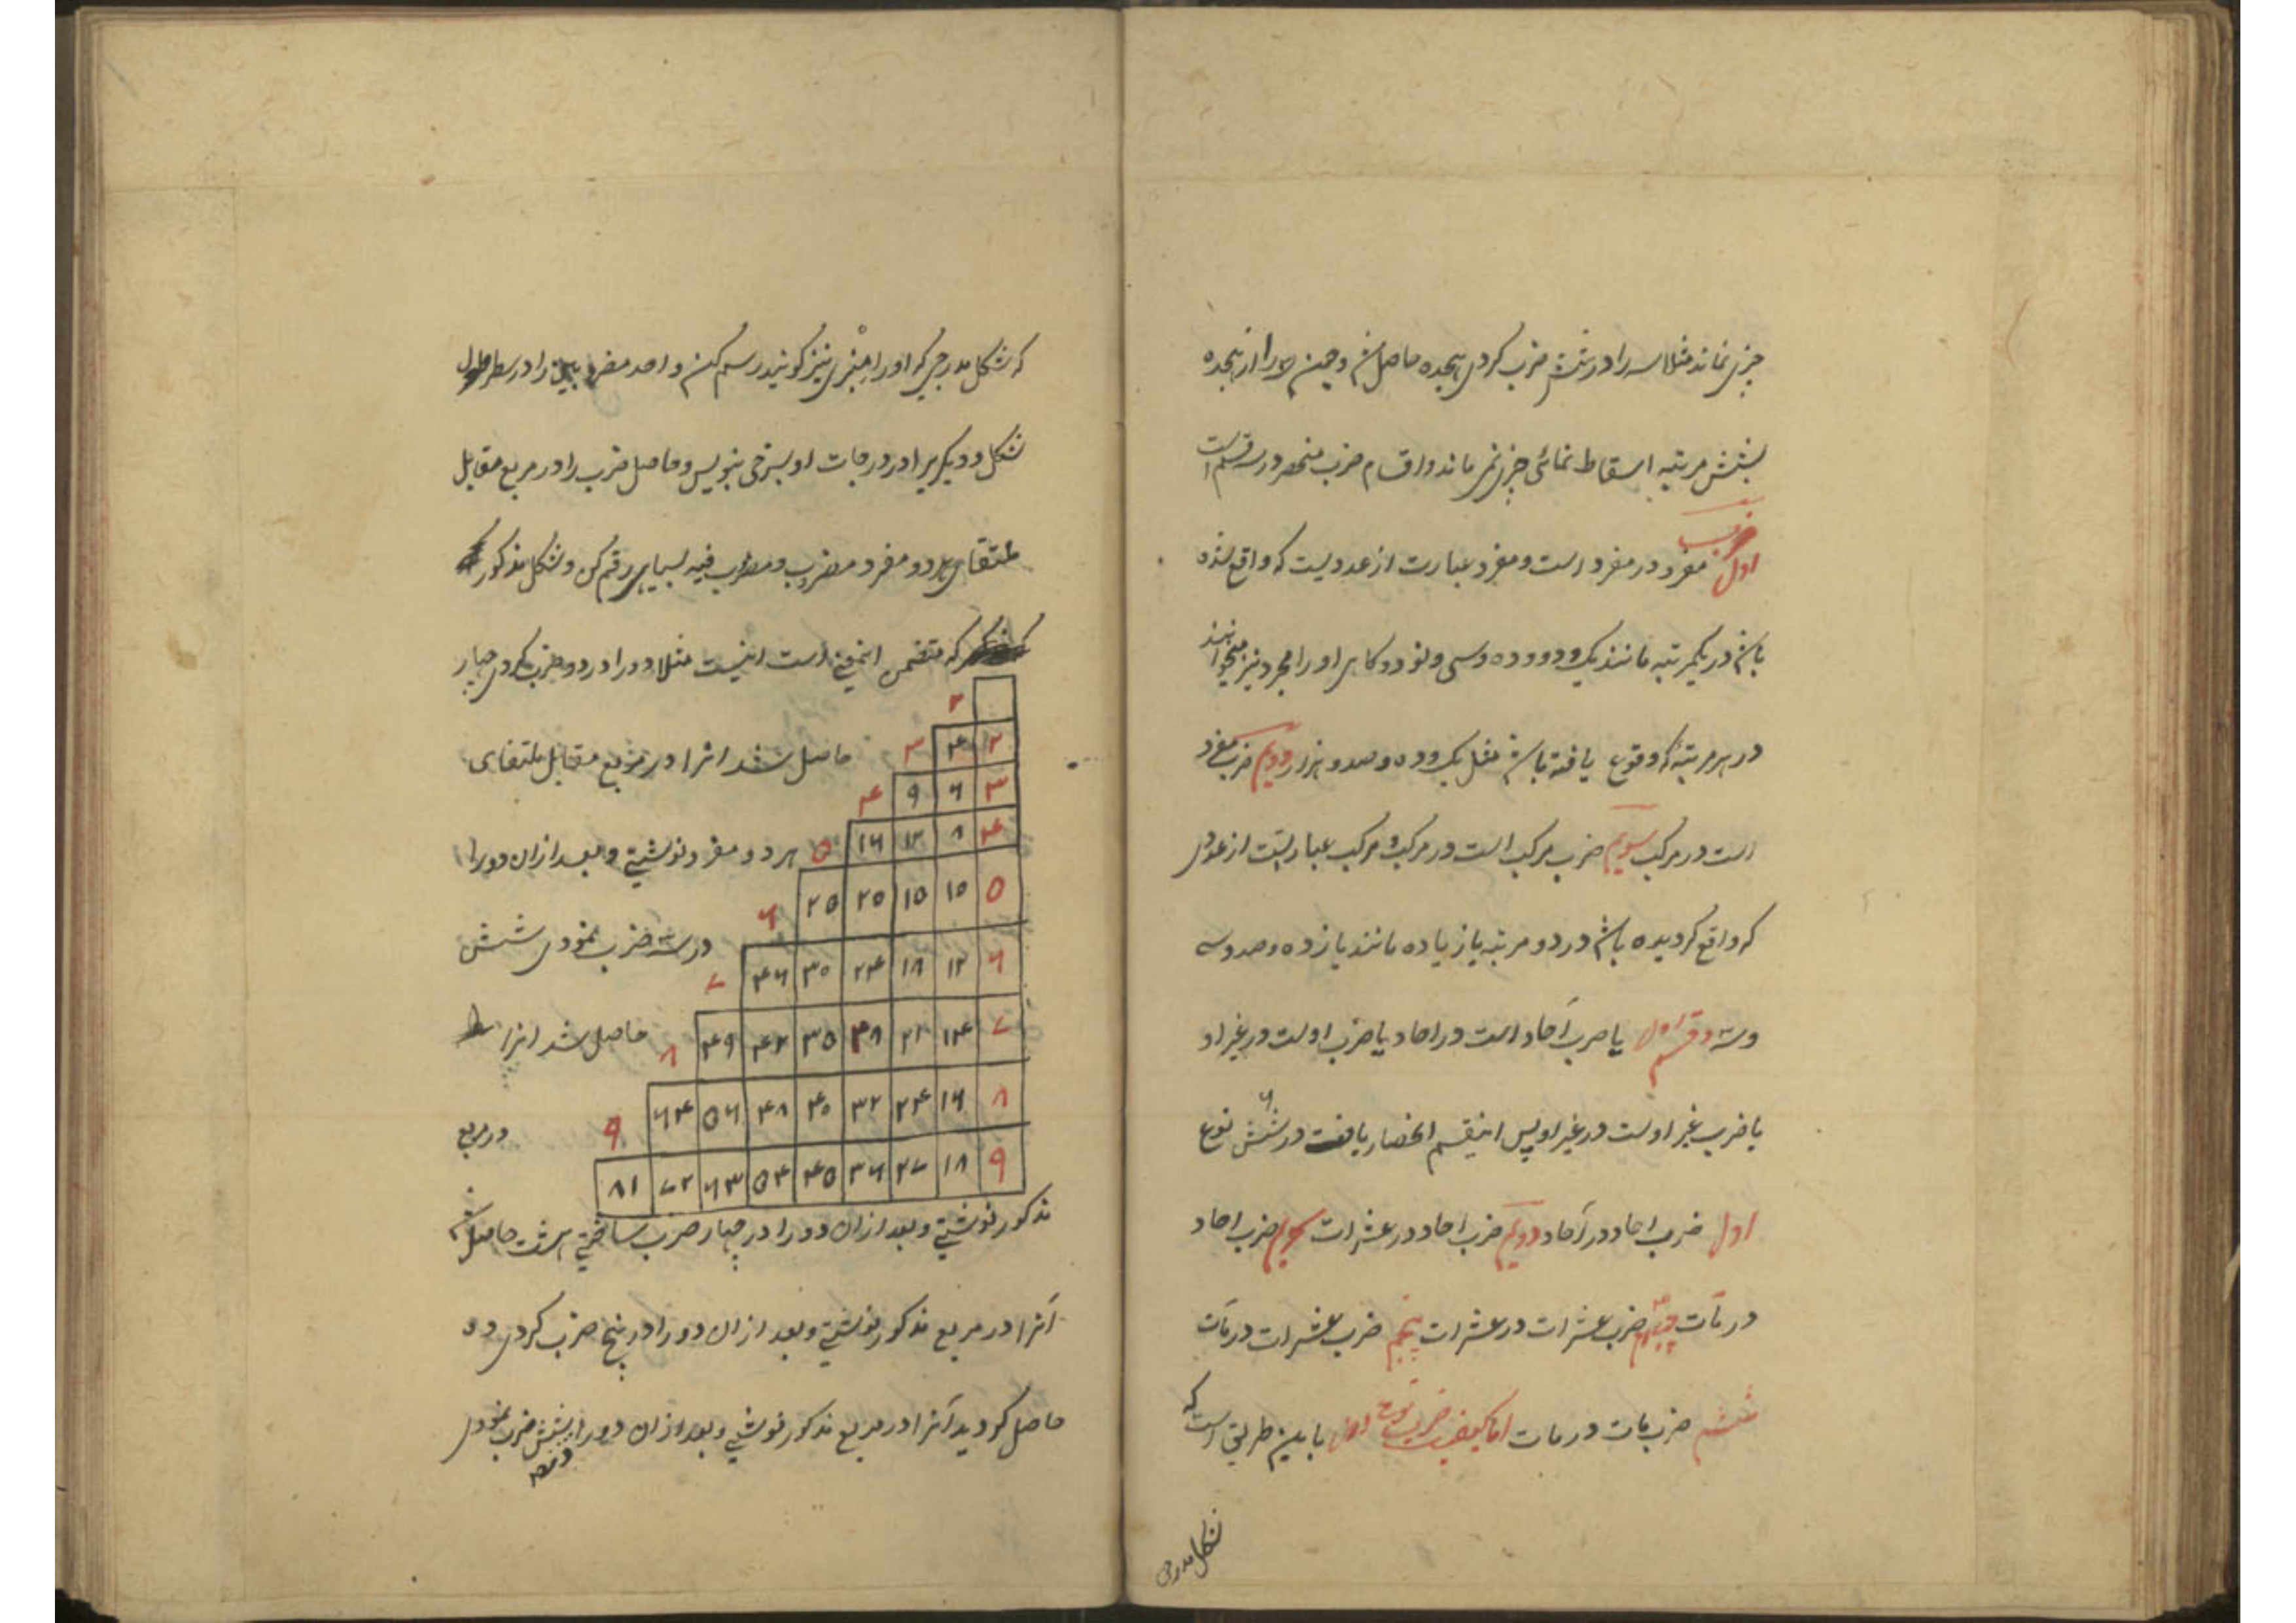 چیزی نماند مثلا سه را در شش ضرب کردی هیجده حاصل شد و چون سه را از هیجده
بشش مرتبه اسقاط نمائی چیزی نمی ماند و اقسام ضرب منحصر در سه قسم است
اول ضرب مفرد در مفرد است و مفرد عبارت از عددیست که واقع شده
باشد در یکمرتبه مانند یک و دو و ده و سی و نود و کاهی او را مجرد نیز میخوانند
در هر مرتبه که وقوع یافته باشد مثل یک و ده و صد و هزار دویم ضرب مفرد
است در مرکب سویم ضرب مرکب است در مرکب و مرکب عبارتست از عددی
که واقع کردیده باشد در دو مرتبه یا زیاده مانند یازده و صد و سه
و قسم اول یا ضرب آحاد است در احاد یا ضرب اوست در غیر او
یا ضرب غیر اوست در غیر او پس اینقسم انحصار یافت در شش نوع
۶
اول ضرب احاد در آحاد دویم ضرب احاد در عشرات سیوم ضرب احاد
در مآت چهارم ضرب عشرات در عشرات پنجم ضرب عشرات در مآت
ششم ضرب مات در مات اما کیفیت ضرب نوع اول باین طریق است که
شکل مدرجی
که شکل مدرجی که او را منبری نیز کویند رسم کن و احد مضروبین را در سطر طول
شکل و دیکریرا در درجات او بسرخی بنویس و حاصل ضرب را در مربع مقابل
ملتقای هر دو مفرد مضروب و مضروب فیه بسیاهی رقم کن و شکل مذکور
که متضمن اینمعنی است اینست مثلا دو را در دو ضرب کردی چهار
۲
حاصل شد انرا در مربع مقابل ملتقای ۳ ۴ ۲
۴ ۹ ۶ ۳
هر دو مفرد نوشتی و بعد از ان دو را ۵ ۱۶ ۱۲ ۸ ۴
۶ ۲۵ ۲۰ ۱۵ ۱۰ ۵
در سه ضرب نمودی شش ۷ ۳۶ ۳۰ ۲۴ ۱۸ ۱۲ ۶
حاصل شد انرا ۸ ۴۹ ۴۲ ۳۵ ۲۸ ۲۱ ۱۴ ۷
در مربع ۹ ۶۴ ۵۶ ۴۸ ۴۰ ۳۲ ۲۴ ۱۶ ۸
۸۱ ۷۲ ۶۳ ۵۴ ۴۵ ۳۶ ۲۷ ۱۸ ۹
مذکور نوشتی و بعد از ان دو را در چهار ضرب ساختی هشت حاصل شد
آنرا در مربع مذکور نوشتی و بعد از ان دو را در پنج ضرب کردی ده
حاصل کردید آنرا در مربع مذکور نوشتی و بعد از ان دو را بشش ضرب نمودی